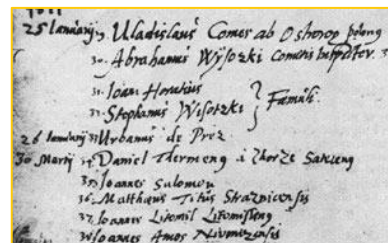 25 Ianuarij 29. Uladislaus Comes ab Ostrorog polong
30. Abrahamus Wysozki Comitis
31. Ioan Horatius
32. Stephanus Wisotzki } Famuli.
26 Ianuarij 33 Urbanus de Prez
30 Martij 34. Daniel Thermeng à
35 Ioannes Salomon
36. Matthæus Titus Straznicensis
37. Ioannes Litomil Litomisleng
38 Ioannes Amos Niwnizensis